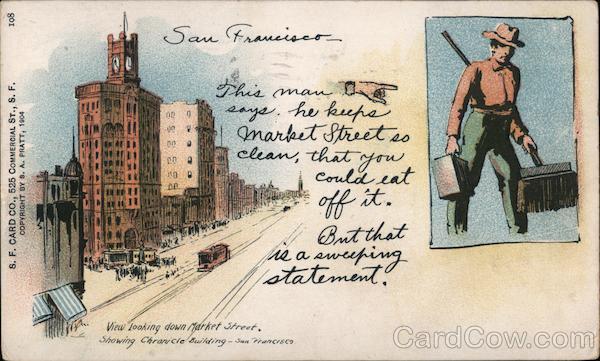 108
S. F. CARD CO., 525 COMMERCIAL ST., S. F.
COPYRIGHT BY S. A. PRATT, 1904
San Francisco
This man
says he keeps
Market Street so
clean, that you
could eat
off it.
But that
is a sweeping
statement.
View looking down Market Street.
Showing Chronicle Building - San Francisco
CardCow.com